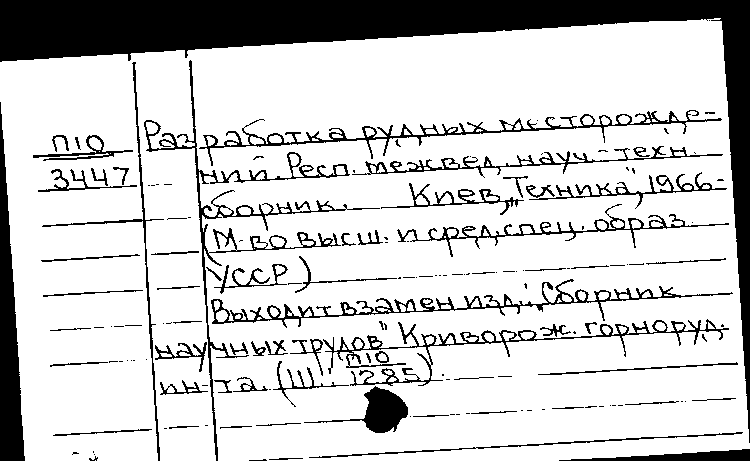 П10
3447
Разработка рудных месторожде-
ний. Респ. межвед. науч.-техн.
сборник. Киев, „Техника", 1966-
(М-во высш. и сред. спец. образ.
УССР)
Выходит взамен изд.: „Сборник
научных трудов" Криворож. горноруд.
ин-та. (Ш: П10
1285).